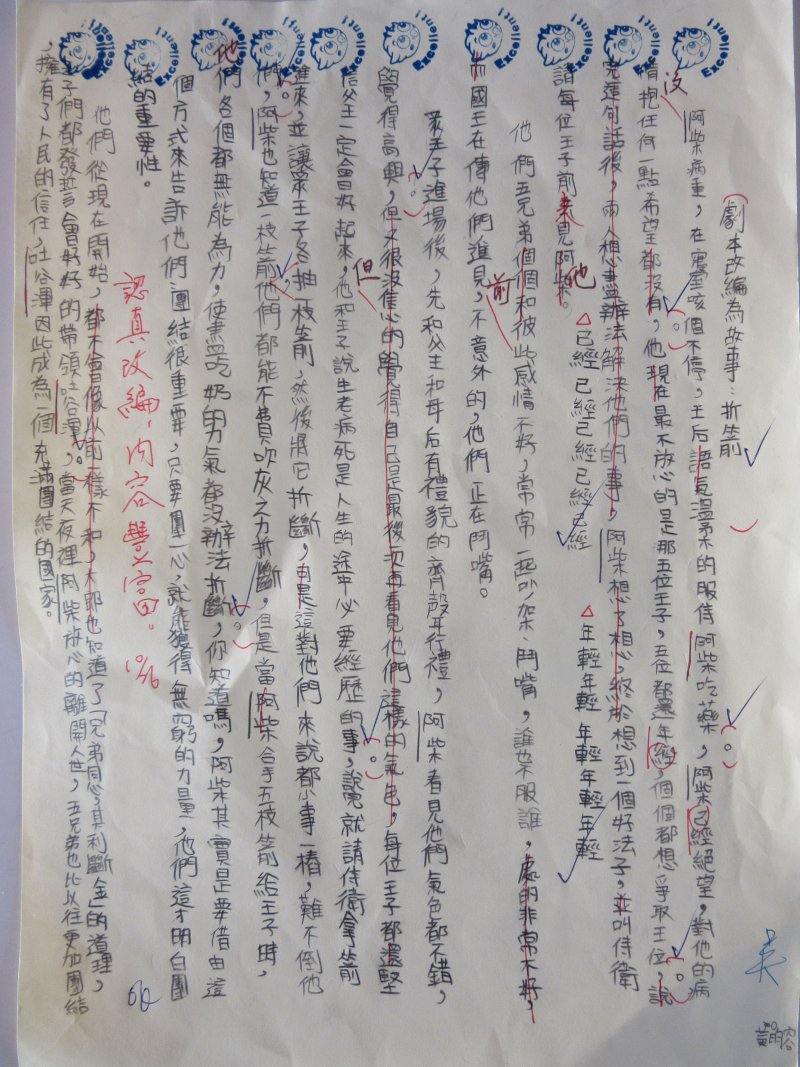 （劇本改編為故事：折箭）
阿柴病重，在寢室咳個不停，王后語氣溫柔的服侍阿柴吃藥，阿柴已經絕望，對他的病
沒有抱任何一點希望都沒有，他現在最不放心的是那五位王子，五位都還年經，個個都想爭取王位，說
完這句話後，兩人想盡辦法解決他們的事，阿柴想了想心，終於想到一個好法子，並叫侍衛
請每位王子前來見阿柴。他
△已經 已經 已經 已經 已經
△年輕 年輕 年輕 年輕 年輕
他們五兄弟個個和彼此感情不好，常常一起吵架、鬥嘴，誰也不服誰，處的非常不好，
前
而國王在傳他們進見，不意外的，他們正在鬥嘴。
眾王子進場後，先和父王和母后有禮貌的齊聲行禮，阿柴看見他們氣色都不錯，
覺得高興，但又很沒信心的覺得自己是最後一次再看見他們這樣的氣色，每位王子都還堅
但
信父王一定會好起來，他和王子說生老病死是人生的途中必要經歷的事，說完就請侍衛拿箭
進來，並讓眾王子各抽一枝箭，然後將它折斷，可是這對他們來說都小事一樁，難不倒他
們，阿柴也知道一枝箭他們都能不費吹灰之力折斷，但是當阿柴合手五枝箭給王子時，
他們各個都無能為力，使盡吃奶的力氣都沒辦法折斷，你知道嗎，阿柴其實是要借由這
個方式來告訴他們團結很重要，只要團一心，就能獲得無窮的力量，他們這才明白團
結的重要性。
他們從現在開始，都不會像以前一樣不和，大郎也知道了「兄弟同心，其利斷金」的道理，
王子們都發誓會好好的帶領吐谷渾，當天夜裡阿柴放心的離開人世，五兄弟也比以往更加團結
，擁有了人民的信任，吐谷渾因此成為一個充滿團結的國家。
認真改編，內容豐富。10/6
Excellent!
Excellent!
Excellent!
Excellent!
Excellent!
Excellent!
Excellent!
Excellent!
Excellent!